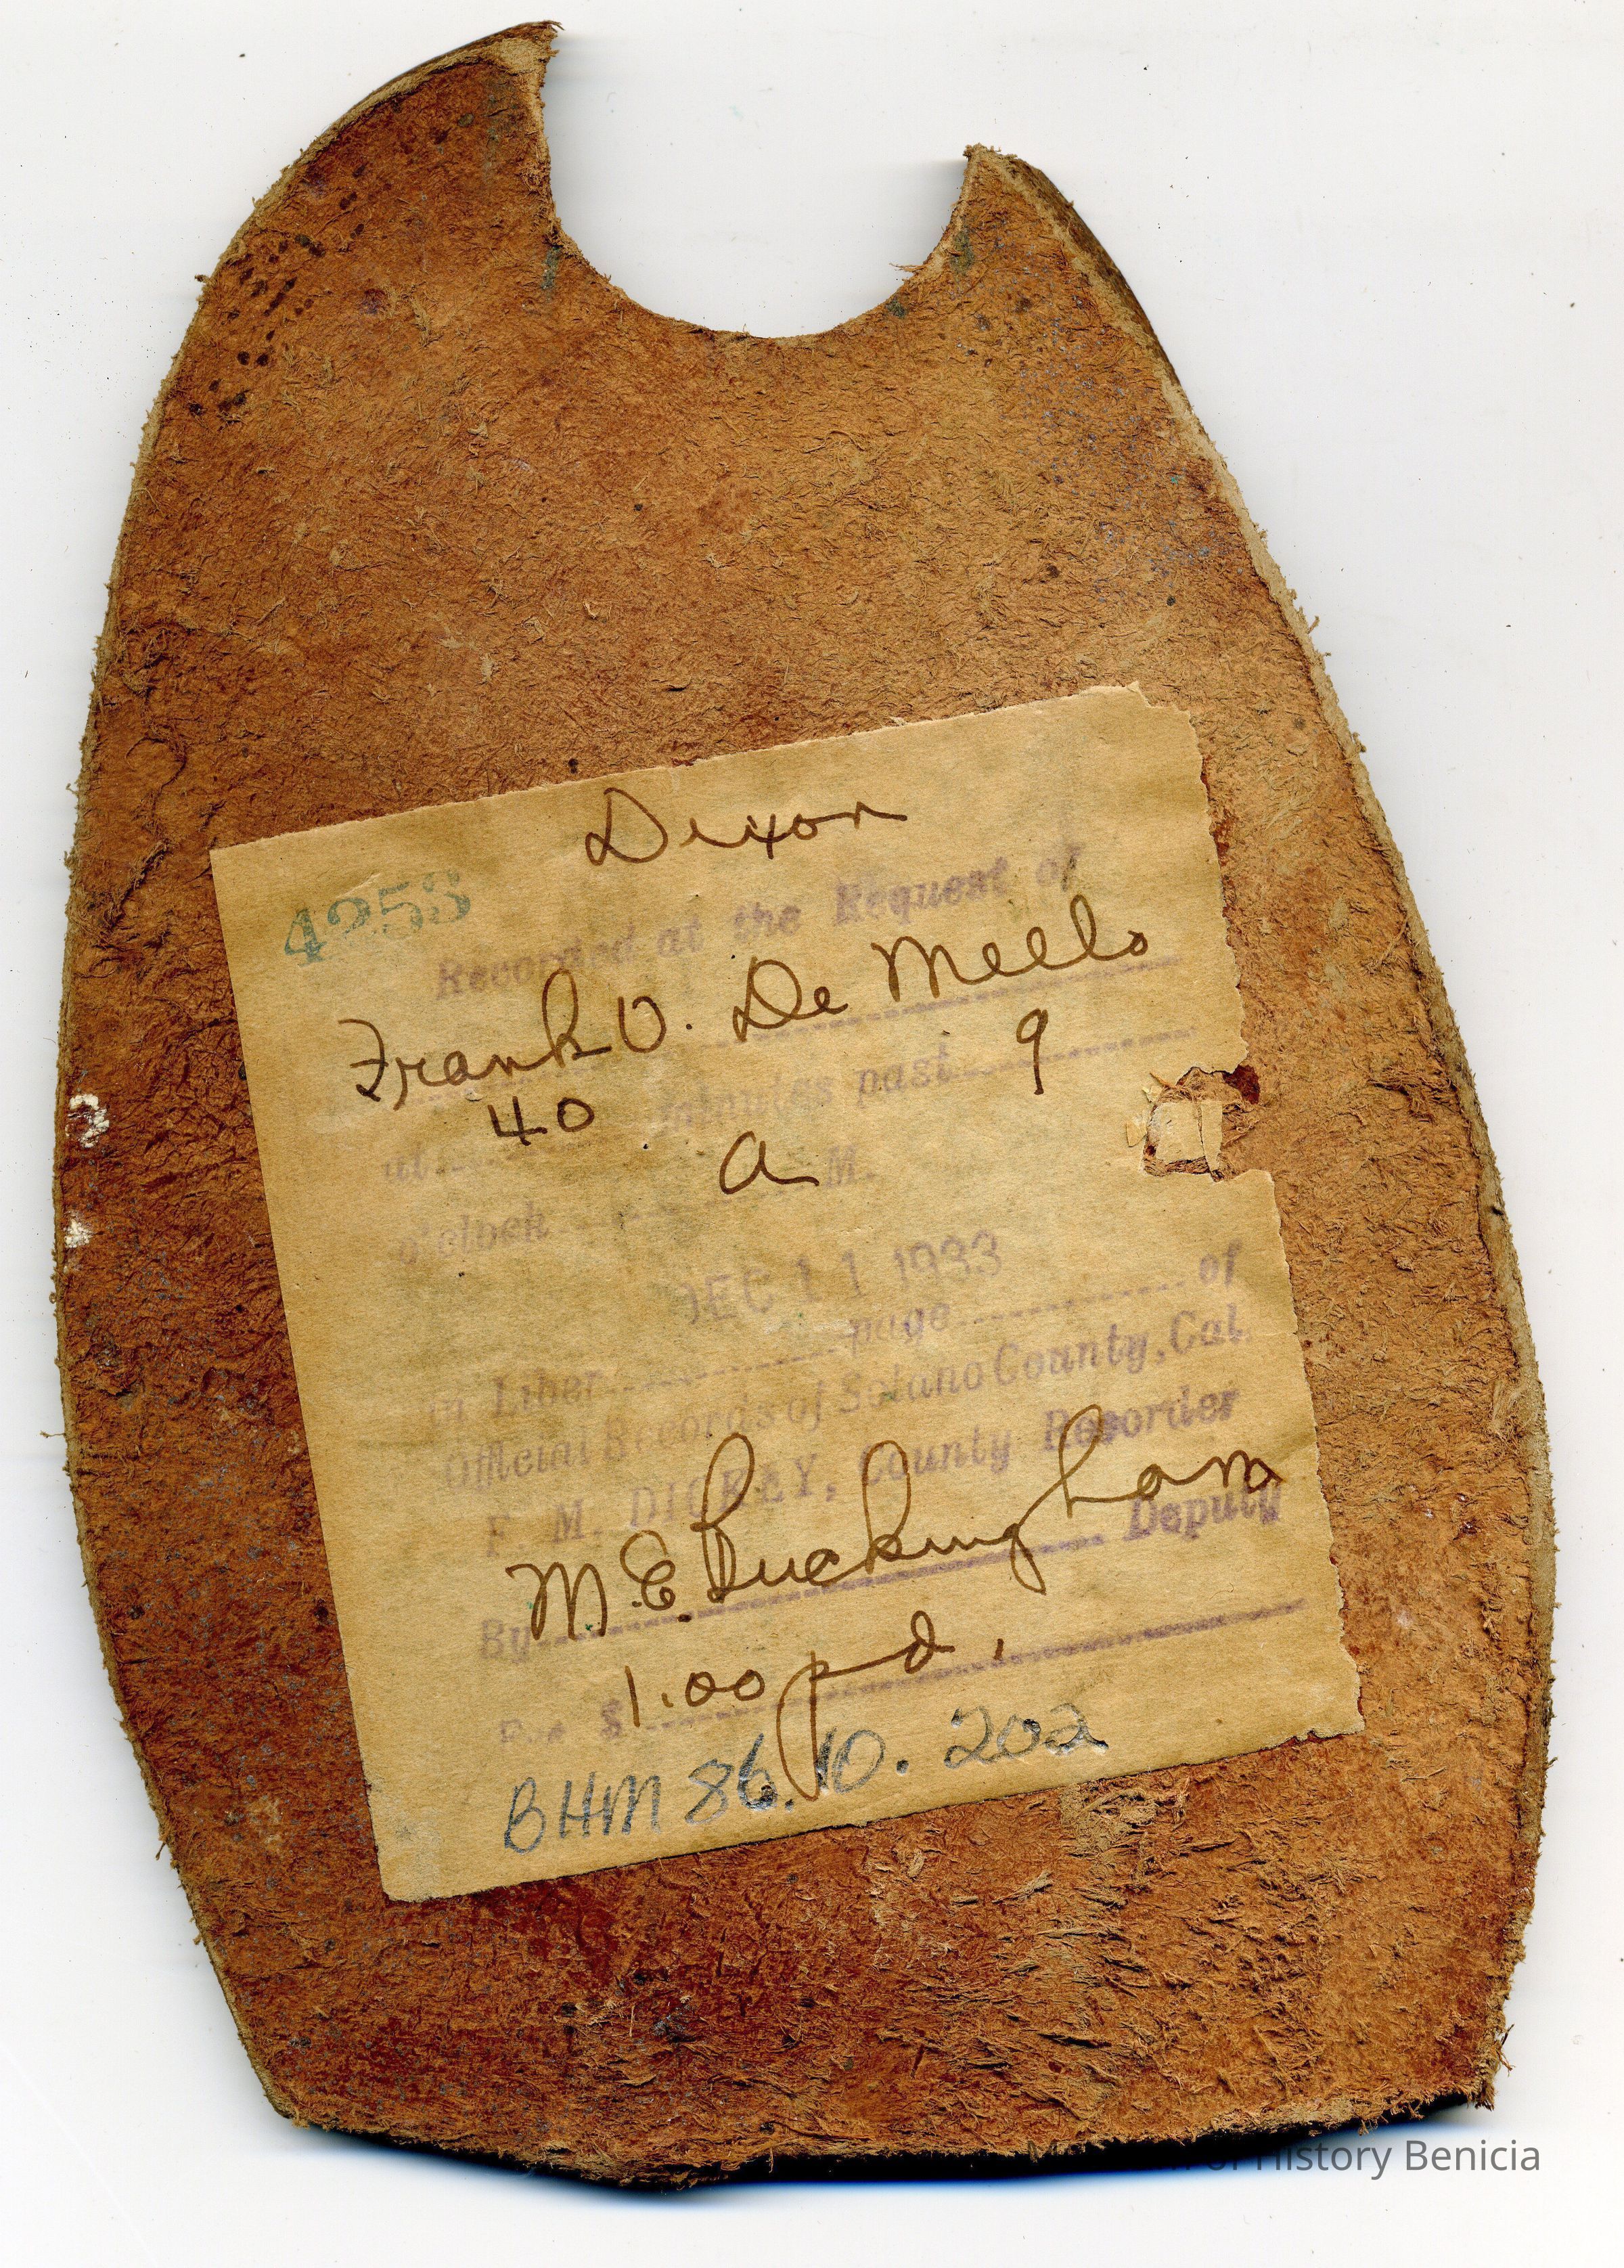 Dixon
4253
Recorded at the Request of
Frank V. De Mello
at 40 minutes past 9
o'clock a M.
DEC 11 1933
in Liber page of
Official Records of Solano County, Cal.
F. M. DICKEY, County Recorder
By M. E. Buckingham Deputy
Fee $ 1.00 pd.
BHM 86.10.202
History Benicia